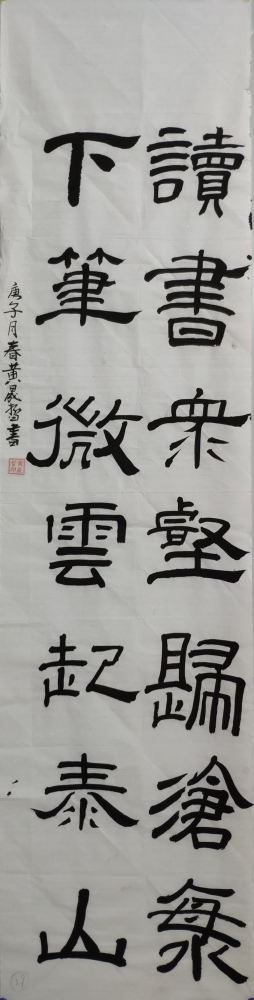 讀書衆壑歸滄海
下筆微雲起泰山
庚子月春黃晟哲書